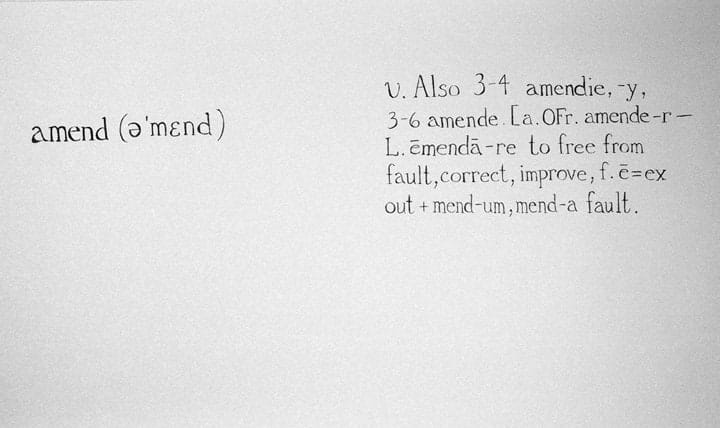 amend (ə'mɛnd)
v. Also 3-4 amendie, -y,
3-6 amende. [a. OFr. amende-r—
L. ēmendā-re to free from
fault, correct, improve, f. ē=ex
out + mend-um, mend-a fault.